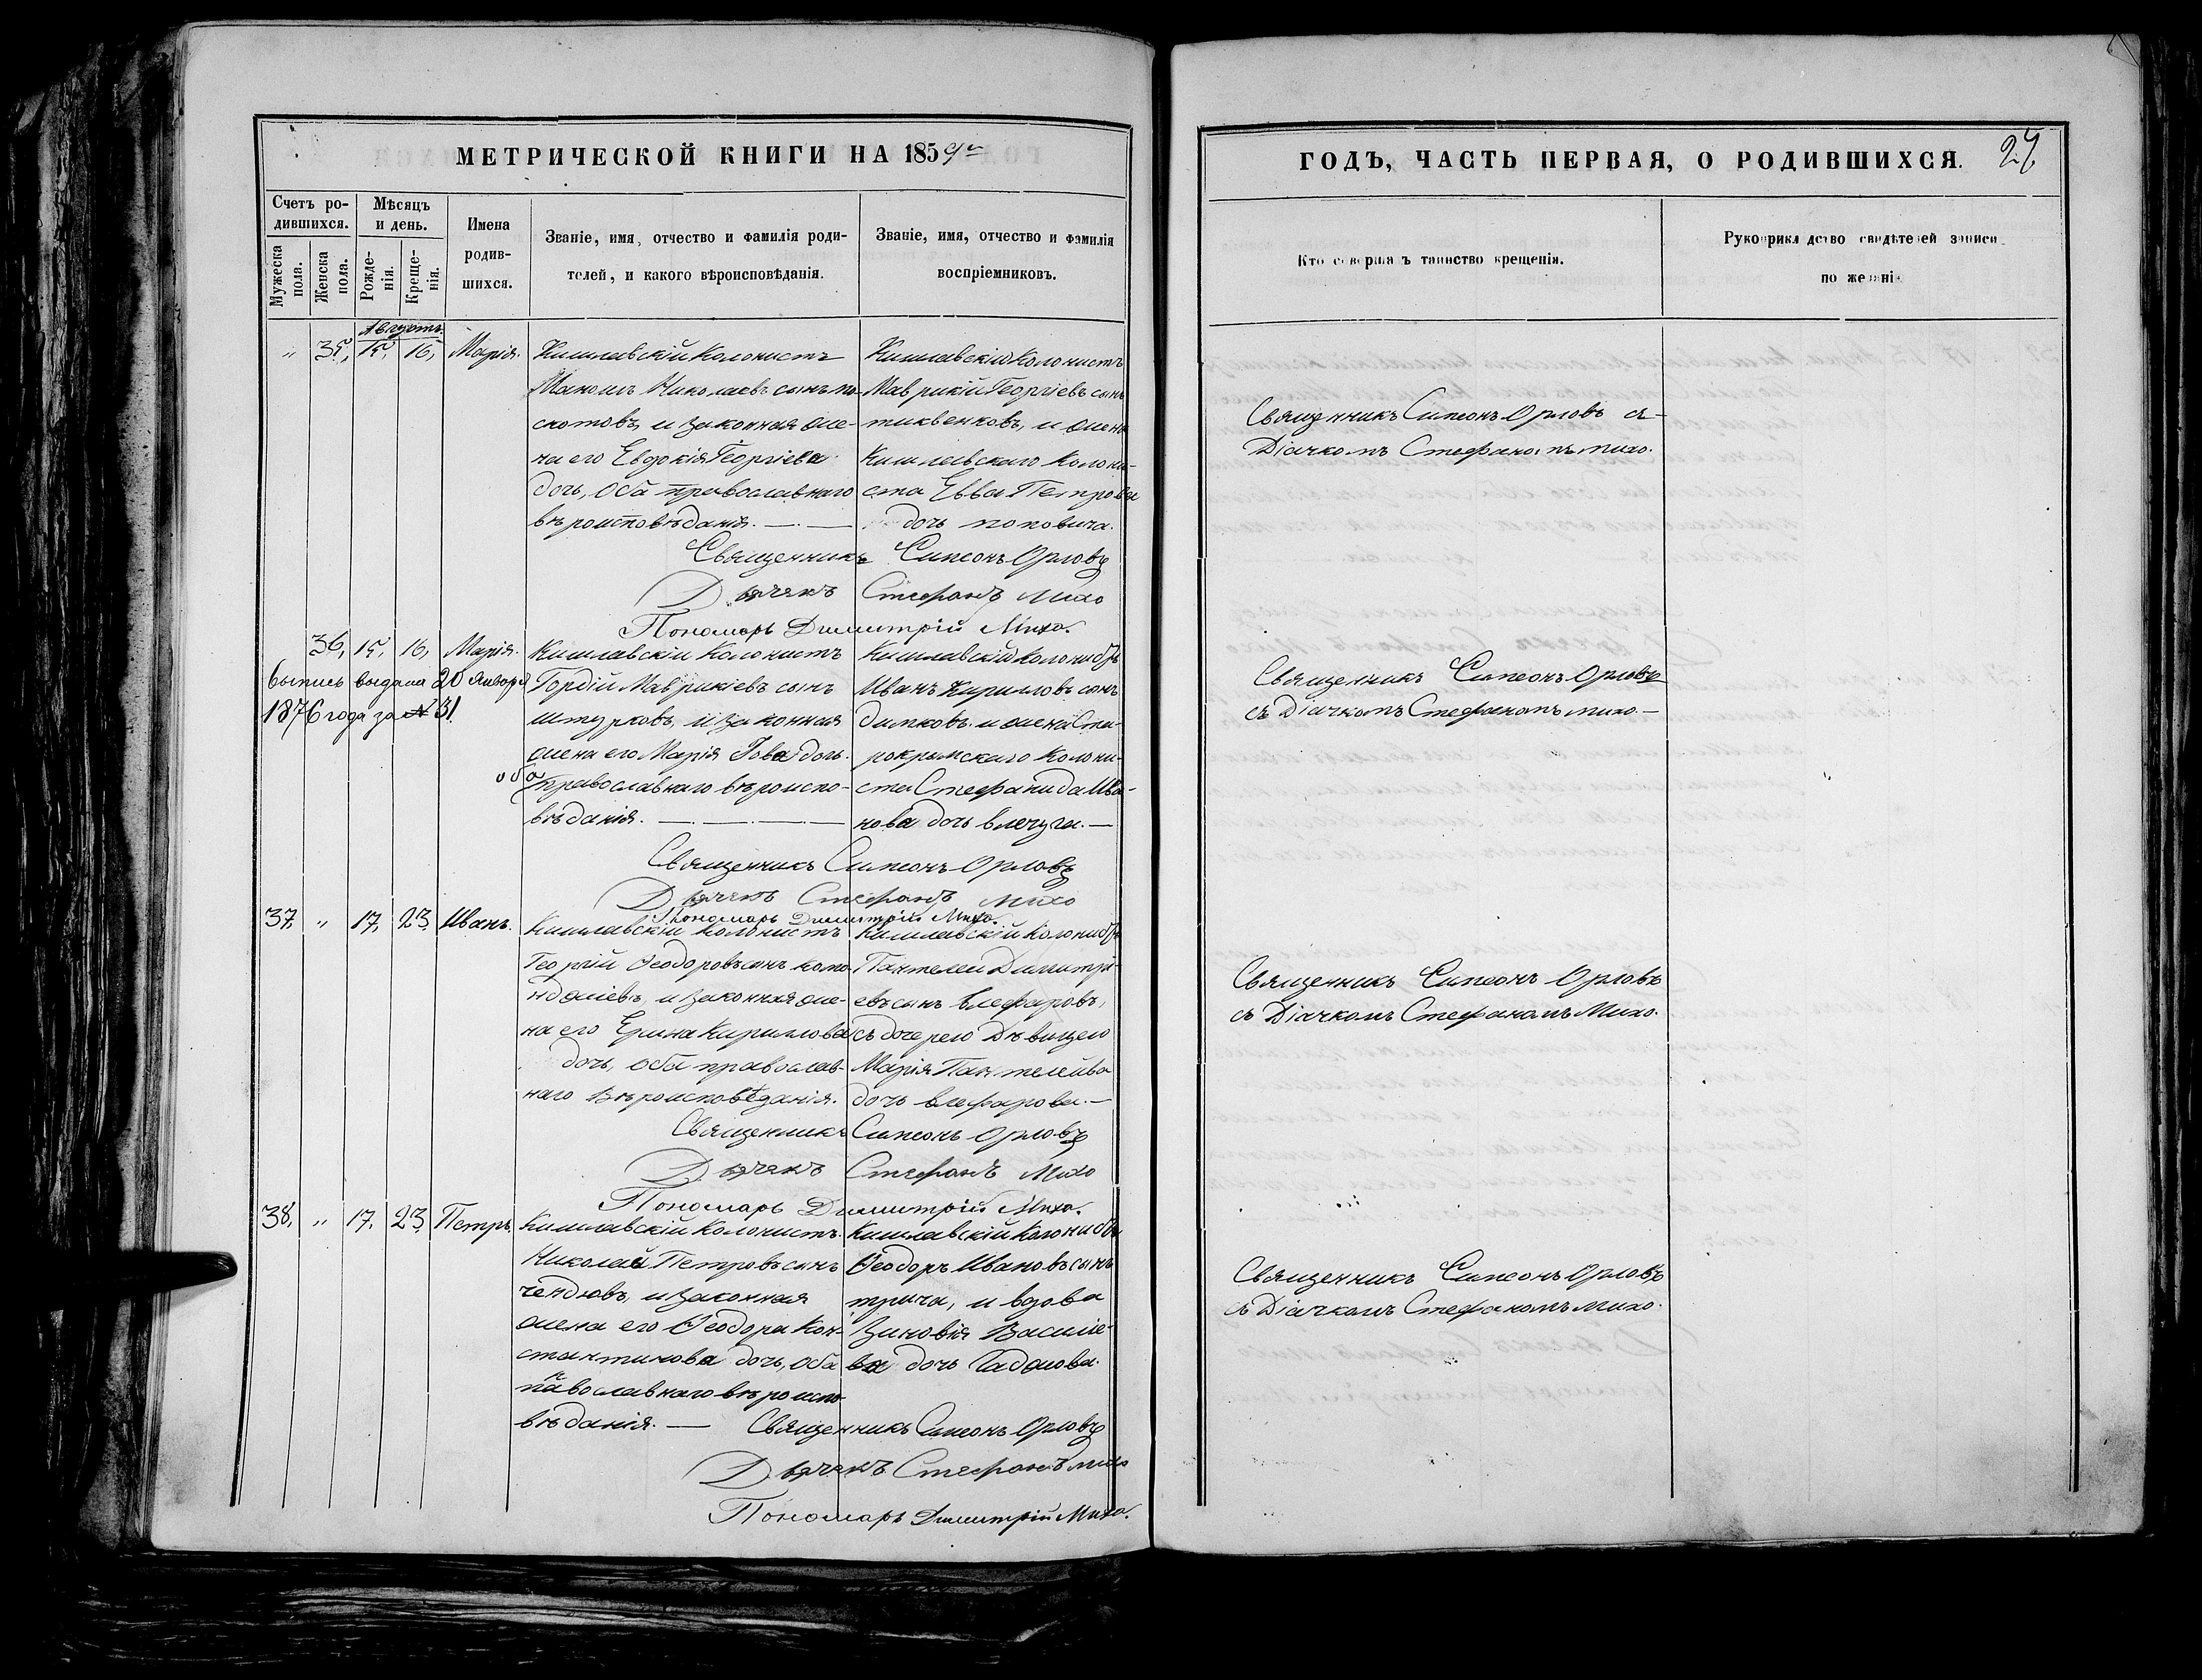 МЕТРИЧЕСКОЙ КНИГИ НА 1859й
Счетъ родившихся.
Мужеска пола.
Женска пола.
Мѣсяцъ и день.
Рожденія.
Крещенія.
Имена родившихся.
Званіе, имя, отчество и фамилія родителей, и какого вѣроисповѣданія.
Званіе, имя, отчество и фамилія воспріемниковъ.
Августъ.
„ 35, 15, 16, Марія.
Кишлавскій Колонистъ
Николаевъ сынъ
и законная же-
на его Евдокія Георгіева
дочь, оба православнаго
вѣроисповѣданія.
Кишлавскій Колонистъ
Маврикій Георгіевъ сынъ
тиквенковъ, и жена
Кишлавскаго Колони-
ста Евва Петрова
дочь поповича.
Священникъ Симеонъ Орловъ
Дьячекъ Стефанъ Михо
Пономарь Димитрій Михо.
36, 15, 16, Марія.
Выпись выдана 20 Января
1876 года за № 31.
Кишлавскій Колонистъ
Гордій Маврикіевъ сынъ
штурковъ, и законная
жена его Марія дочь.
оба православнаго вѣроиспо-
вѣданія.
Кишлавскій Колонистъ
Иванъ Кирилловъ сынъ
димковъ. и жена Ста-
рокрымскаго Колони-
ста Стефанида Ива-
нова дочь
Священникъ Симеонъ Орловъ
Дьячекъ Стефанъ Михо
Пономарь Димитрій Михо.
37, „ 17, 23, Иванъ.
Кишлавскій Колонистъ
Георгій Ѳеодоровъ сынъ
и законная же-
на его Ерина Кириллова
дочь, оба православ-
наго Вѣроисповѣданія.
Кишлавскій Колонистъ
Пантелей Димитрі-
евъ сынъ влефаровъ,
съ дочерею Дѣвицею
Марія Пантелейва
дочь влефарова.
Священникъ Симеонъ Орловъ
Дьячекъ Стефанъ Михо
Пономарь Димитрій Михо.
38, „ 17, 23, Петръ.
Кишлавскій Колонистъ.
Николай Петровъ сынъ
чендовъ, и законная
жена его Ѳеодора Кон-
стантинова дочь, оба
православнаго вѣроиспо-
вѣданія.
Кишлавскій Колонистъ
Ѳеодоръ Ивановъ сынъ
трича, и вдова
Зиновія Василіе-
ва дочь
Священникъ Симеонъ Орловъ
Дьячекъ Стефанъ Михо
Пономарь Димитрій Михо.
ГОДЪ, ЧАСТЬ ПЕРВАЯ, О РОДИВШИХСЯ.
Кто совершалъ таинство крещенія.
Рукоприкладство свидѣтелей записи по желанію
Священникъ Симеонъ Орловъ съ
Діячкомъ Стефаномъ михо.
Священникъ Симеонъ Орловъ
съ Діячкомъ Стефаномъ михо
Священникъ Симеонъ Орловъ
съ Діячкомъ Стефаномъ Михо.
Священникъ Симеонъ Орловъ
съ Діячкомъ Стефаномъ михо.